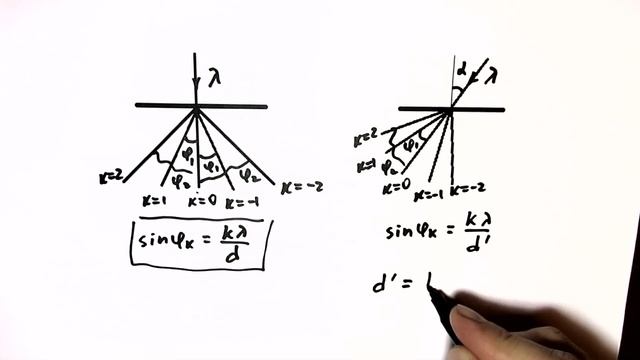 λ
φ₁ φ₁
φ₂ φ₂
κ=2 κ=1 κ=0 κ=-1 κ=-2
sinφₖ = kλ/d
α λ
κ=2
κ=1 φ₁
φ₂
κ=0 κ=-1 κ=-2
sinφₖ = kλ/d'
d' =